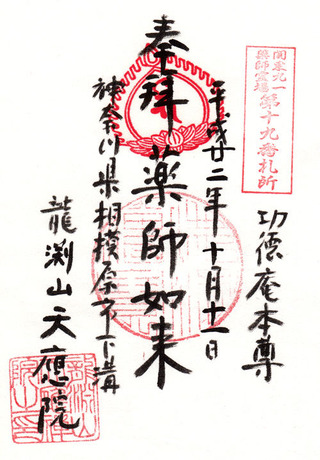 関東九十一
薬師霊場
第十九番札所
功徳庵本尊
平成廿二年十月十一日
奉拝
薬師如来
神奈川県相模原市下溝
龍渕山天應院